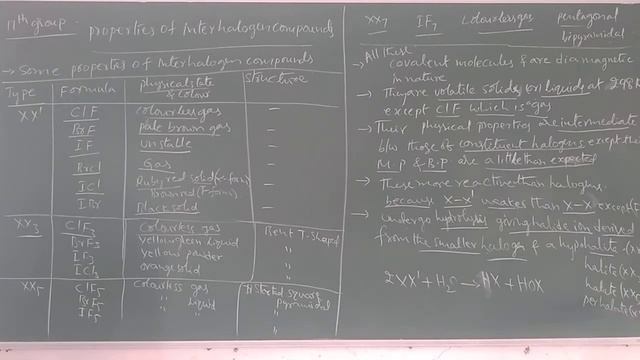 17th group. properties of interhalogen compounds
→ Some properties of interhalogen compounds
Type Formula physical state & colour Structure
XX' ClF colourless gas -
BrF pale brown gas -
IF unstable -
BrCl Gas -
ICl Ruby red solid (α-form) -
Brown red (β-form)
IBr Black solid -
XX3 ClF3 colourless gas Bent T-Shaped
BrF3 yellow green liquid "
IF3 yellow powder "
ICl3 orange solid "
XX5 ClF5 colourless gas Square pyramidal
BrF5 " liquid "
IF5 " " "
XX7 IF7 colourless gas pentagonal bipyramidal
→ All these
covalent molecules & are diamagnetic
in nature
→ They are volatile solids (or) liquids at 298K
except ClF which is a gas
→ Their physical properties are intermediate
b/w those of constituent halogens except the
M.P & B.P are a little than expected
→ These more reactive than halogens
because X-X' weaker than X-X except
→ undergo hydrolysis giving halide ion derived
from the smaller halogen & a hypohalite
halite
halite
perhalate
2XX' + H2O → HX + HOX